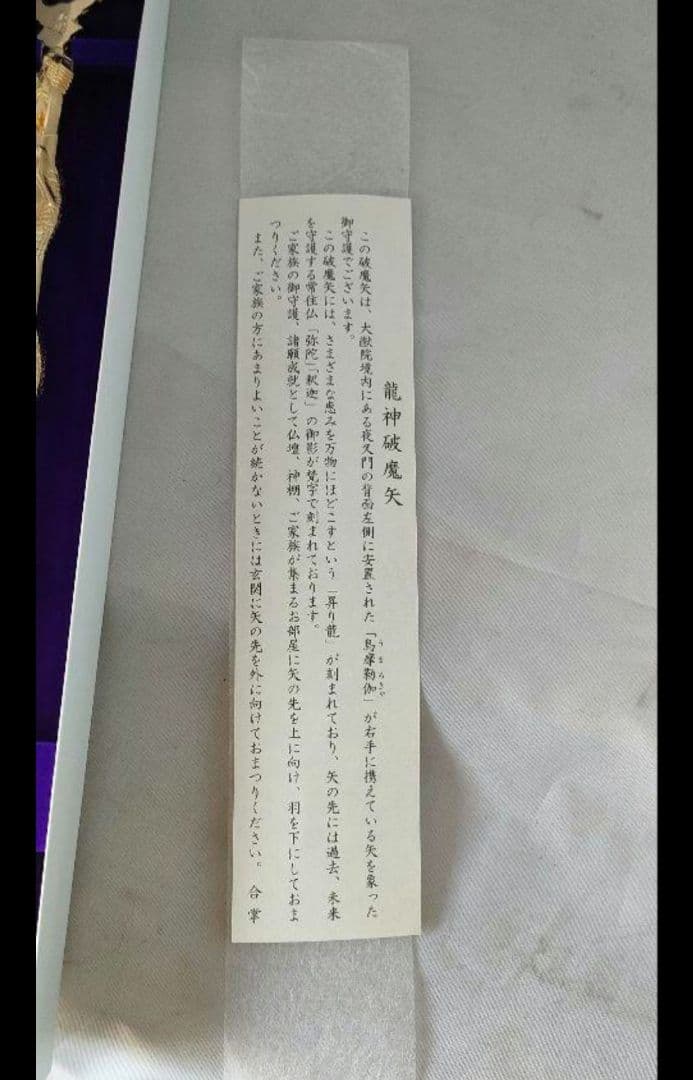 龍神破魔矢
この破魔矢は、大猷院境内にある夜叉門の背面左側に安置された「烏摩勒伽」が右手に携えている矢を象った
うまろきゃ
御守護でございます。
この破魔矢には、さまざまな恵みを万物にほどこすという「昇り龍」が刻まれており、矢の先には過去、未来
を守護する常住仏「弥陀」「釈迦」の御影が梵字で刻まれております。
ご家族の御守護、諸願成就として仏壇、神棚、ご家族が集まるお部屋に矢の先を上に向け、羽を下にしておま
つりください。
また、ご家族の方にあまりよいことが続かないときには玄関に矢の先を外に向けておまつりください。 合掌